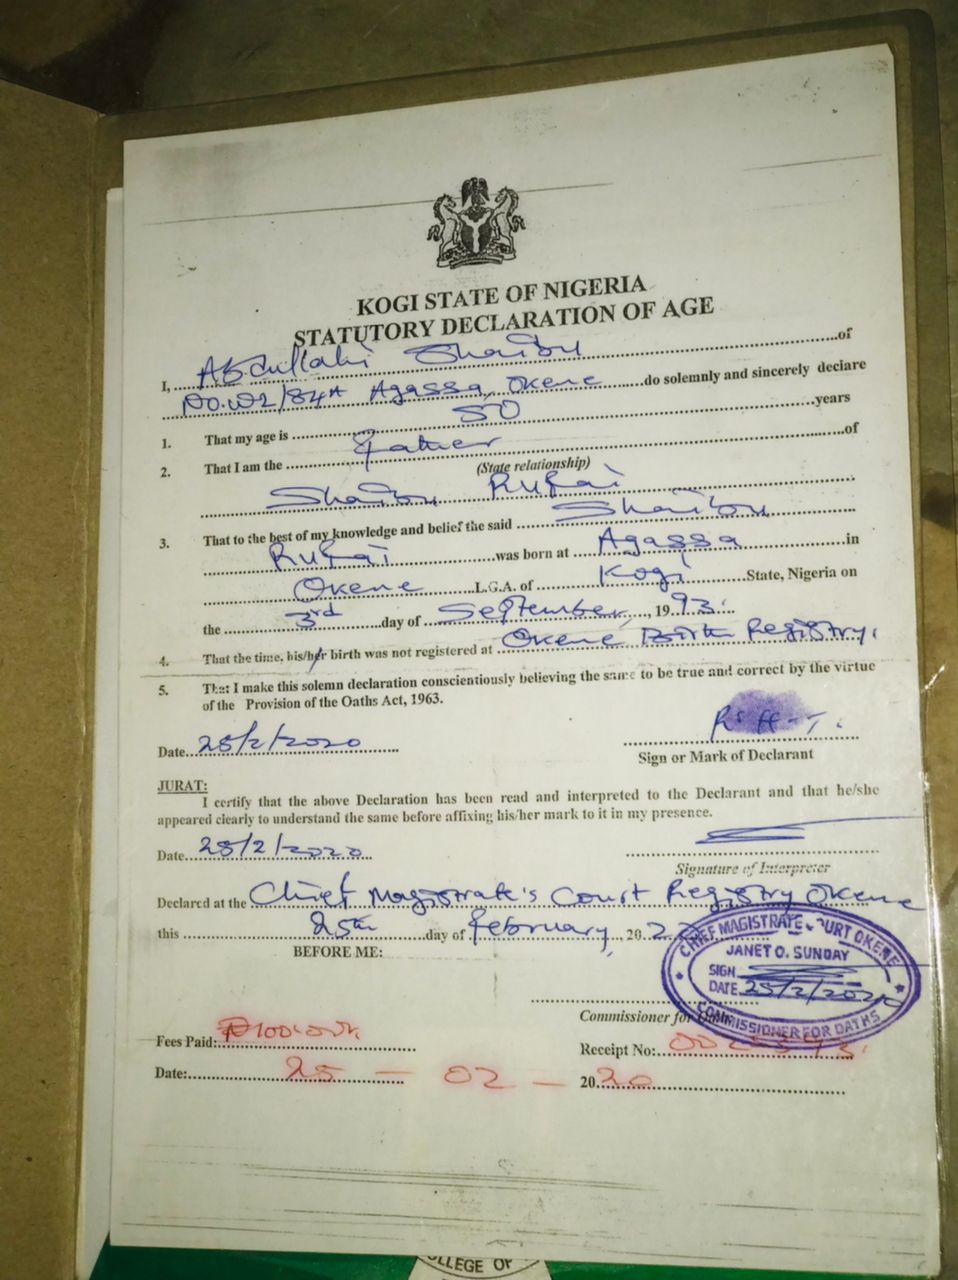 KOGI STATE OF NIGERIA
STATUTORY DECLARATION OF AGE
I, Abdullahi Shaibu of
No. W2/84A Agassa, Okene do solemnly and sincerely declare
1. That my age is 50 years
2. That I am the father of
(State relationship)
Shaibu Rufai
3. That to the best of my knowledge and belief the said Shaibu
Rufai was born at Agassa in
Okene L.G.A. of Kogi State, Nigeria on
the 3rd day of September, 1993.
4. That the time, his/her birth was not registered at Okene Birth Registry.
5. That I make this solemn declaration conscientiously believing the same to be true and correct by the virtue
of the Provision of the Oaths Act, 1963.
Date 25/2/2020
Sign or Mark of Declarant
JURAT:
I certify that the above Declaration has been read and interpreted to the Declarant and that he/she
appeared clearly to understand the same before affixing his/her mark to it in my presence.
Date 25/2/2020
Signature of Interpreter
Declared at the Chief Magistrate's Court Registry Okene
this 25th day of February, 20
BEFORE ME:
CHIEF MAGISTRATE COURT OKENE
JANET O. SUNDAY
SIGN
DATE 25/2/2020
COMMISSIONER FOR OATHS
Commissioner for Oaths
Fees Paid:
Receipt No:
Date: 25 - 02 - 2020
COLLEGE OF